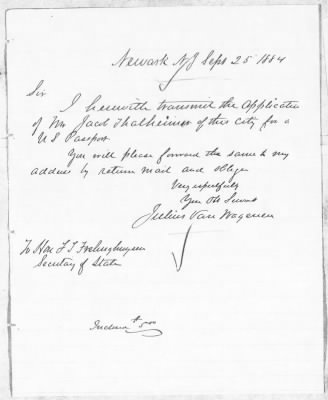 Newark NJ Sept 25 1884
Sir
I herewith transmit the Application
of Mr Jacob Thalheimer of this City for a
U S Passport
You will please forward the same to my
address by return mail and oblige
Very respectfully
Your Obt Servant
Julius Van Wagenen
To Hon F T Frelinghuysen
Secretary of State
Inclose $5.00